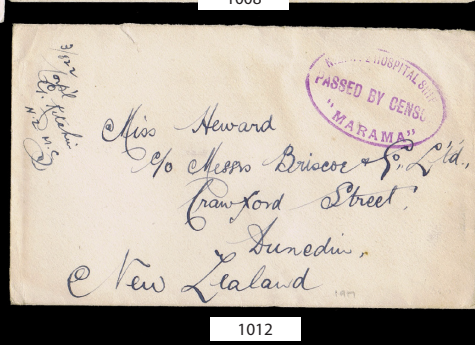 1008
HOSPITAL SHIP
PASSED BY CENSO
"MARAMA"
3/822
N.Z.M.C.
Miss Heward
C/o Messrs Briscoe & Co. Ltd.
Crawford Street,
Dunedin,
New Zealand
1012